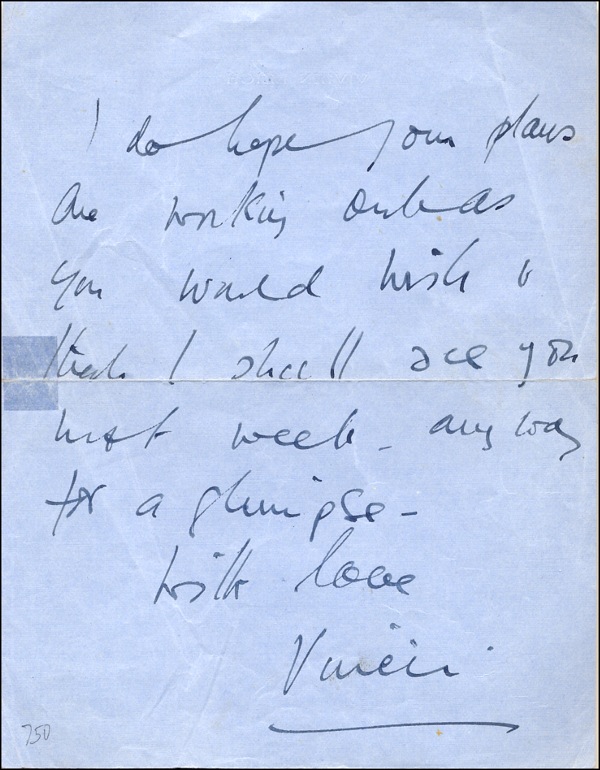 I do hope your plans
are working out as
you would wish &
that I shall see you
next week - anyway
for a glimpse -
with love
Vivien
750